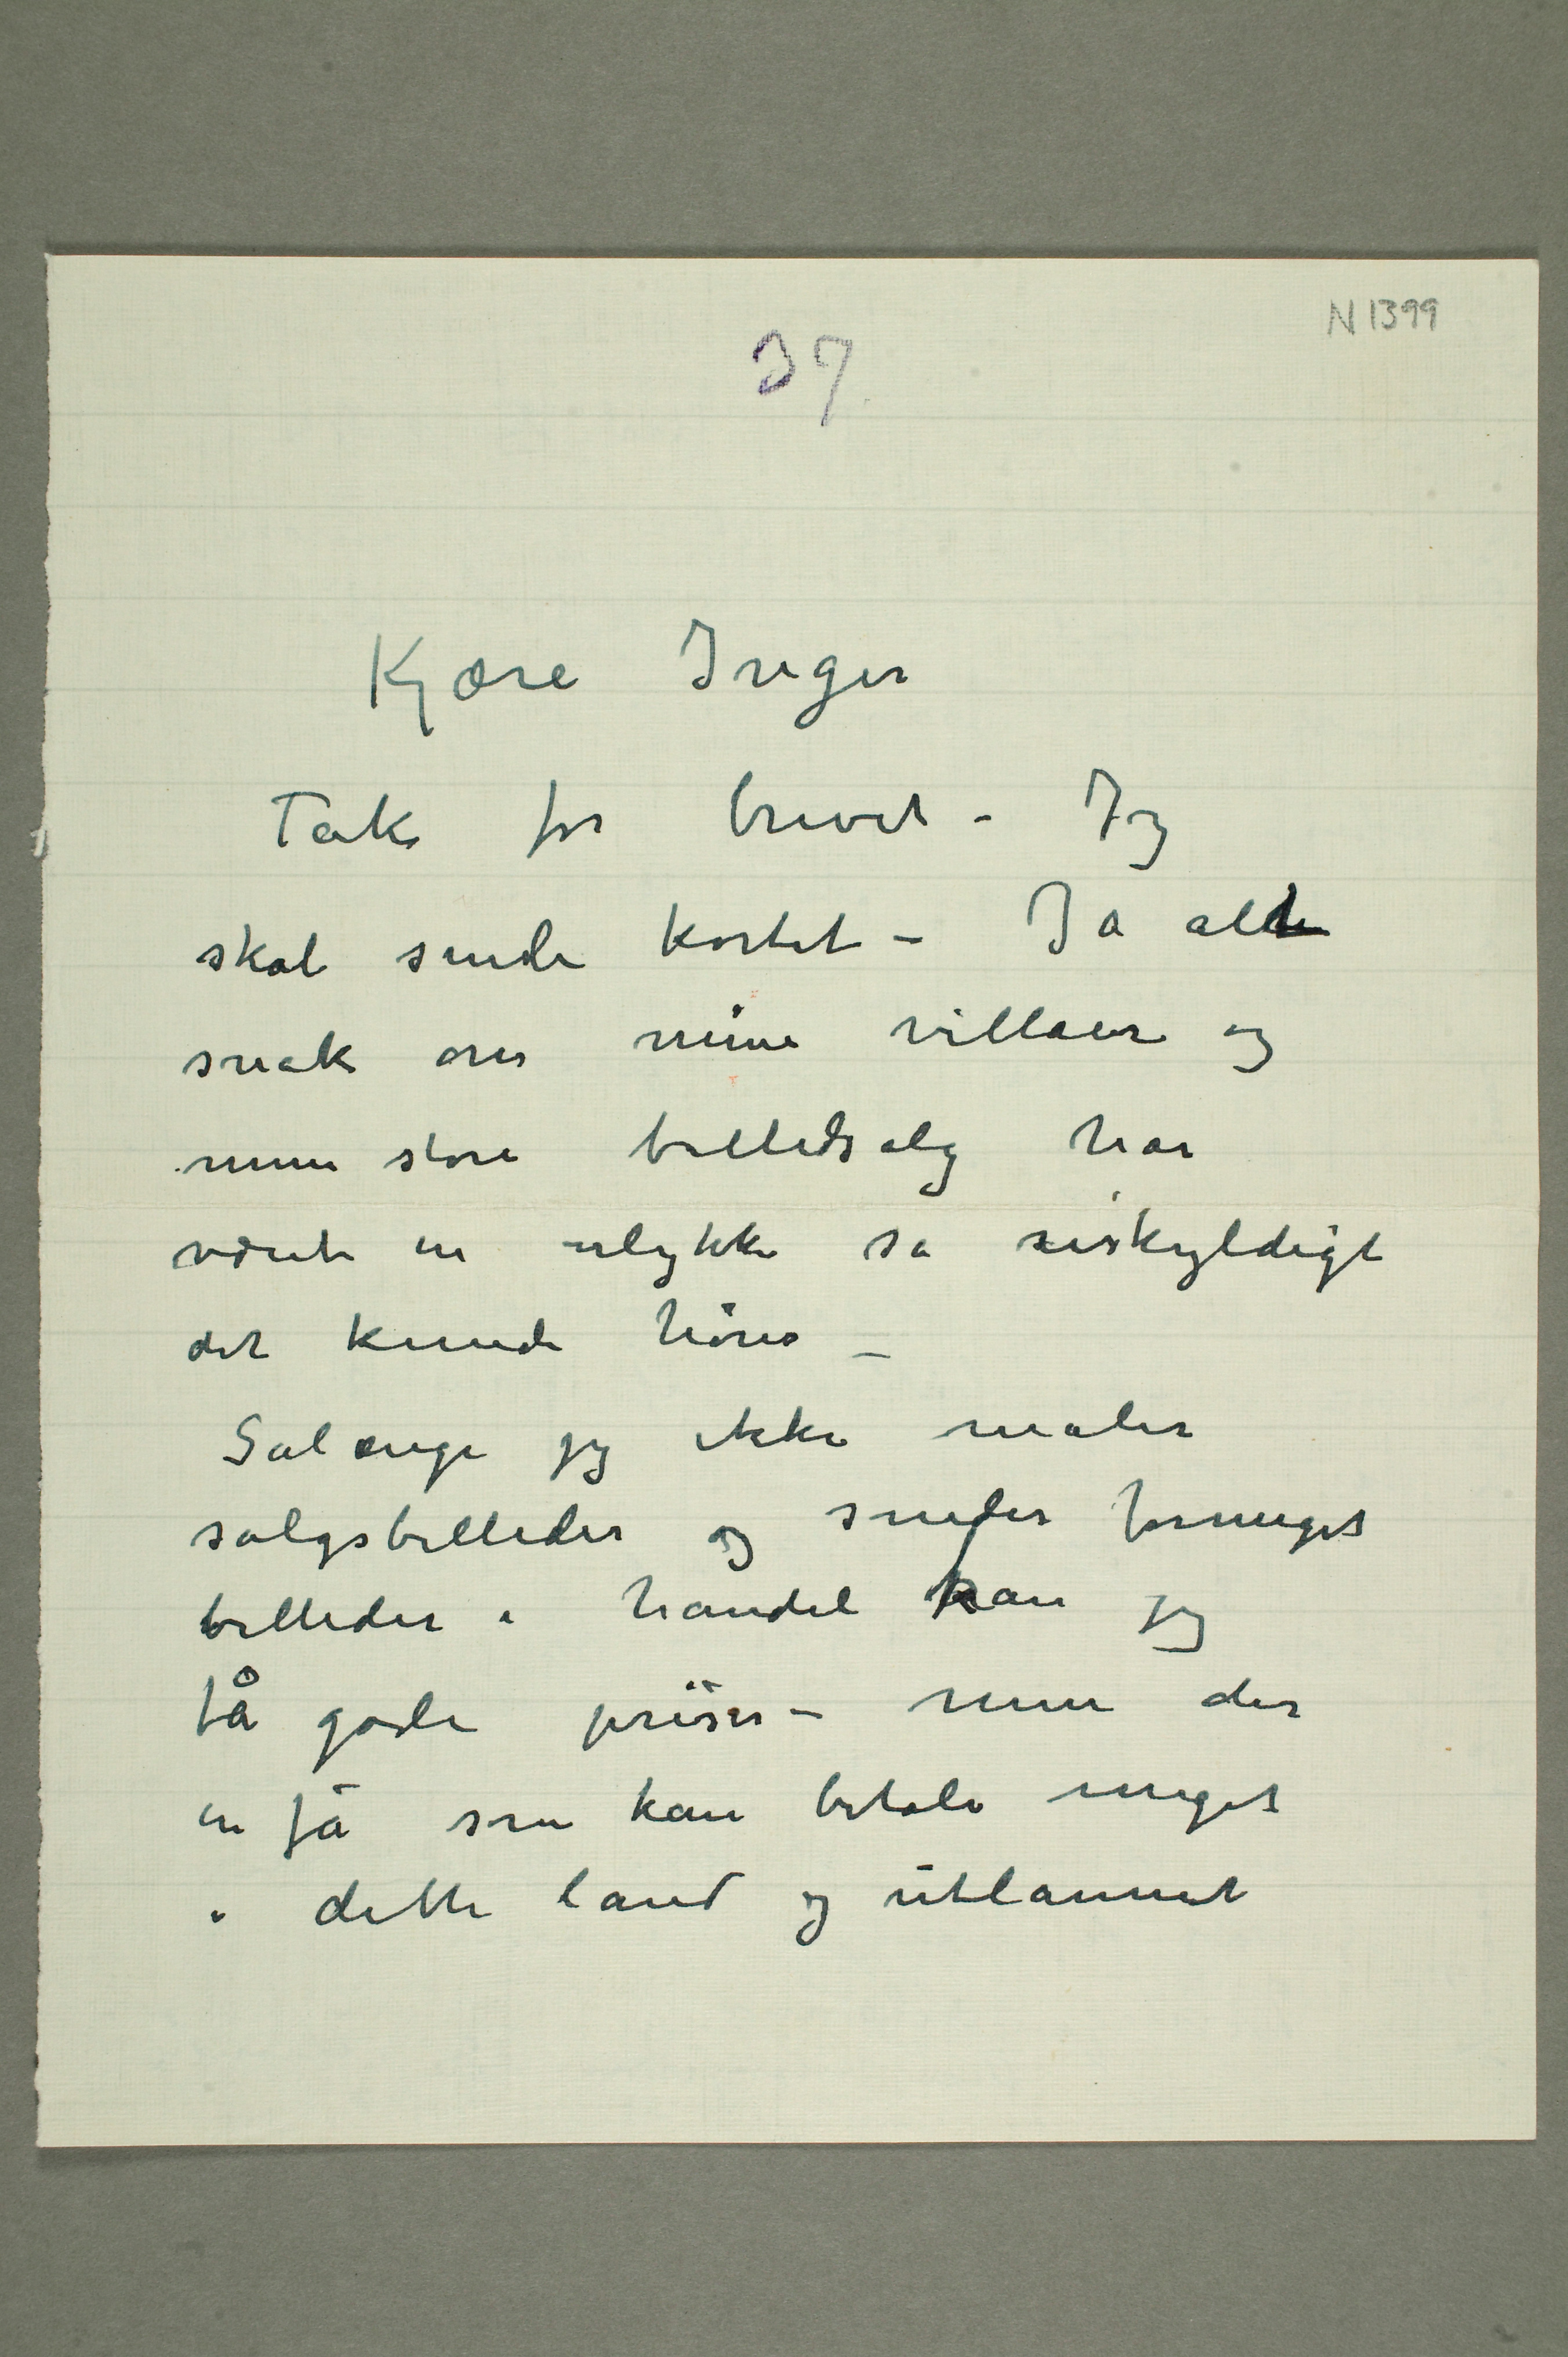 N 1399
37
Kjære Inger
Tak for brevet – Jeg
skal sende kortet – Ja alt
snak om mine villaer og
mine store billedsalg har
været en ulykke så uskyldigt
det kunde høres –
Sålænge jeg ikke maler
salgsbilleder og sender formeget
billeder i handel kan jeg
få gode priser – men der
er få som kan betale meget
i dette land og utlannet